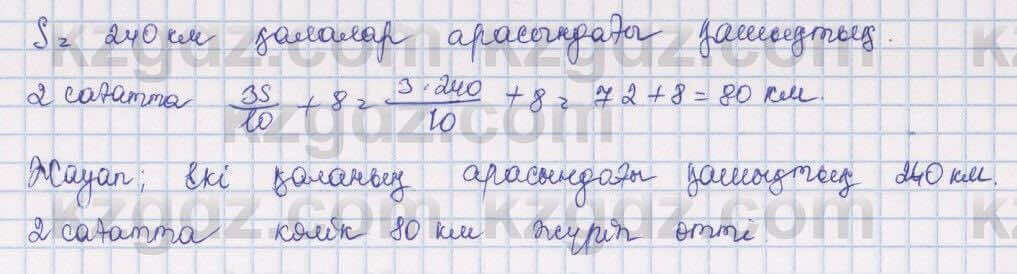 S = 240 км қалалар арасындағы қашықтық.
2 сағатта 3S/10 + 8 = 3·240/10 + 8 = 72 + 8 = 80 км.
Жауап; екі қаланың арасындағы қашықтық 240 км.
2 сағатта көлік 80 км жүріп өтті
kzgdz.com